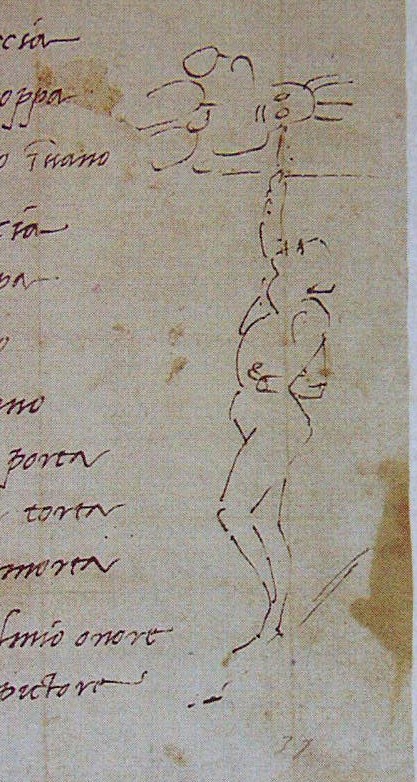 ccia
oppa
o īuano
ccia
pa
o
ano
porta
torta
morta
l mio onore
pictore